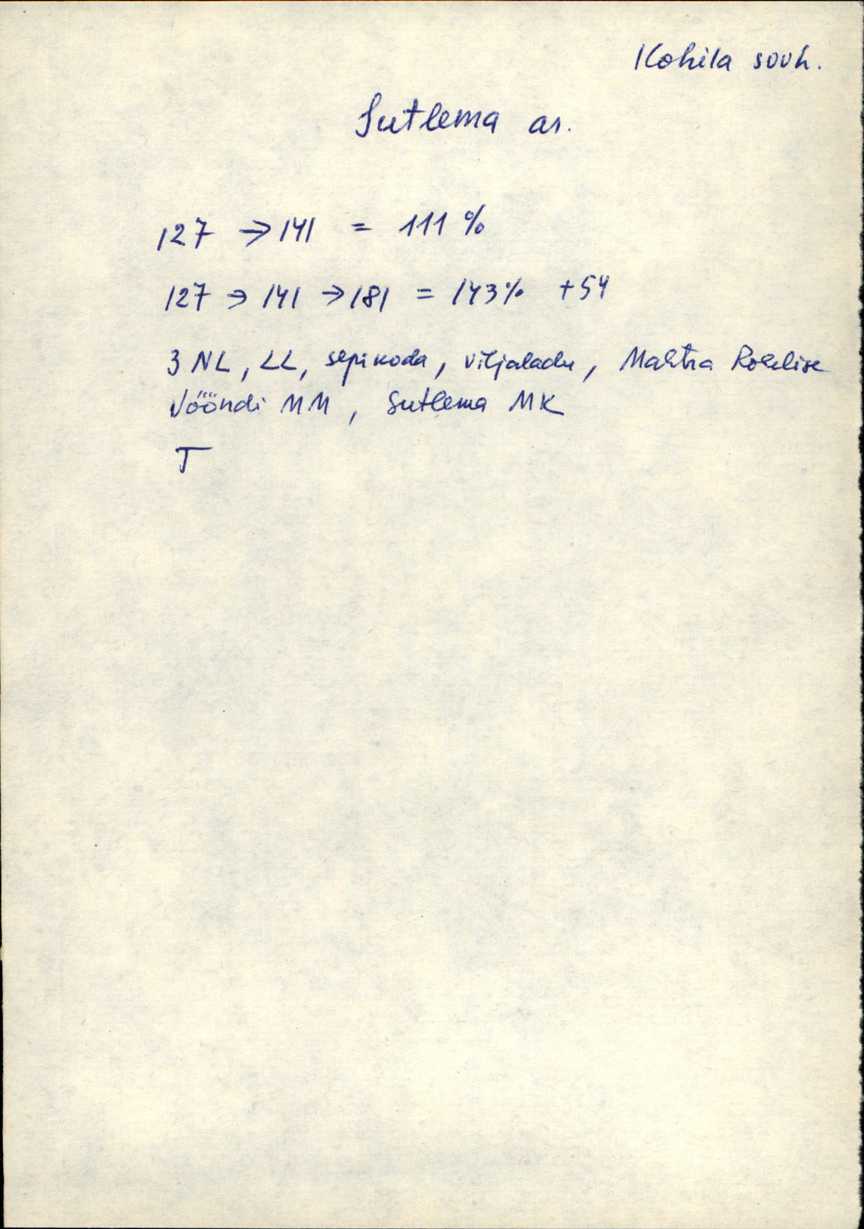 Kohila sovh.
Sutlema as.
127 → 141 = 111 %
127 → 141 → 181 = 143% +54
3 NL, LL, sepikoda, viljaladu, Mahtra Rohelise
Vööndi MM, Sutlema MK
T